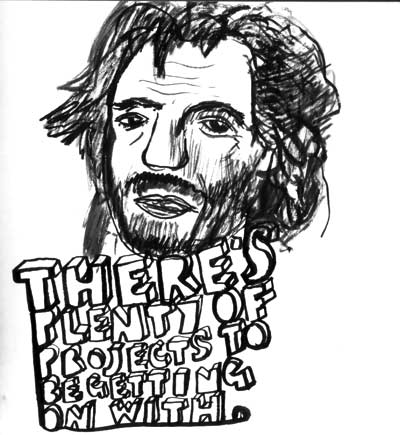 THERE'S
PLENTY OF
PROJECTS TO
BE GETTING
ON WITH.